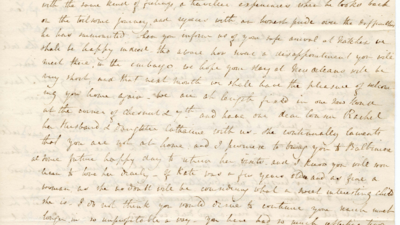 with the same kind of feelings, a traveller experiences when he looks back
on the toilsome journey, and again with an honest pride over the difficulties
he has surmounted. has you inform us of your safe arrival at Natchez we
shall be happy indeed the above has been a disappointment you will
meet there, in the embargo we hope your stay at New Orleans will be
very short, and that next month we shall have the pleasure of
you home again. We are at length fixed in our new house
at the corner of Chesnut & and have our dear Cousin Rachel
her Husband & Daughter Catharine with us. She continually laments
that you are not at home and I promise to bring you to Baltimore
at some future happy day to return her visit, and I know you will soon
learn to love her dearly. If Kate was a few years older and as fine a
woman as she no doubt will be considering what a most interesting child
she is I do not think you would desire to continue your
in so unprofitable a way. you have had so much